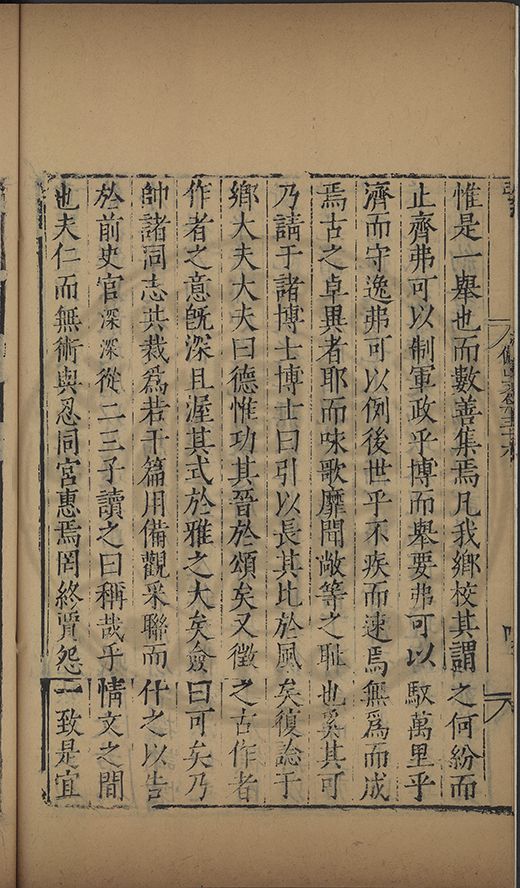 惟是一舉也而數善集焉凡我鄉校其謂之何紛而
止齊弗可以制軍政乎博而舉要弗可以馭萬里乎
濟而守逸弗可以例後世乎不疾而速焉無爲而成
焉古之卓異者耶而咏歌靡聞敞等之耻也奚其可
乃請于諸博士博士曰引以長其比於風矣復諗于
鄉大夫大夫曰德惟功其晉於頌矣又徵之古作者
作者之意旣深且渥其式於雅之大矣僉曰可矣乃
帥諸同志共裁爲若干篇用備觀采聯而什之以告
於前史官深深從二三子讀之曰稱哉乎情文之間
也夫仁而無術與忍同宮惠焉罔終賈怨一致是宜